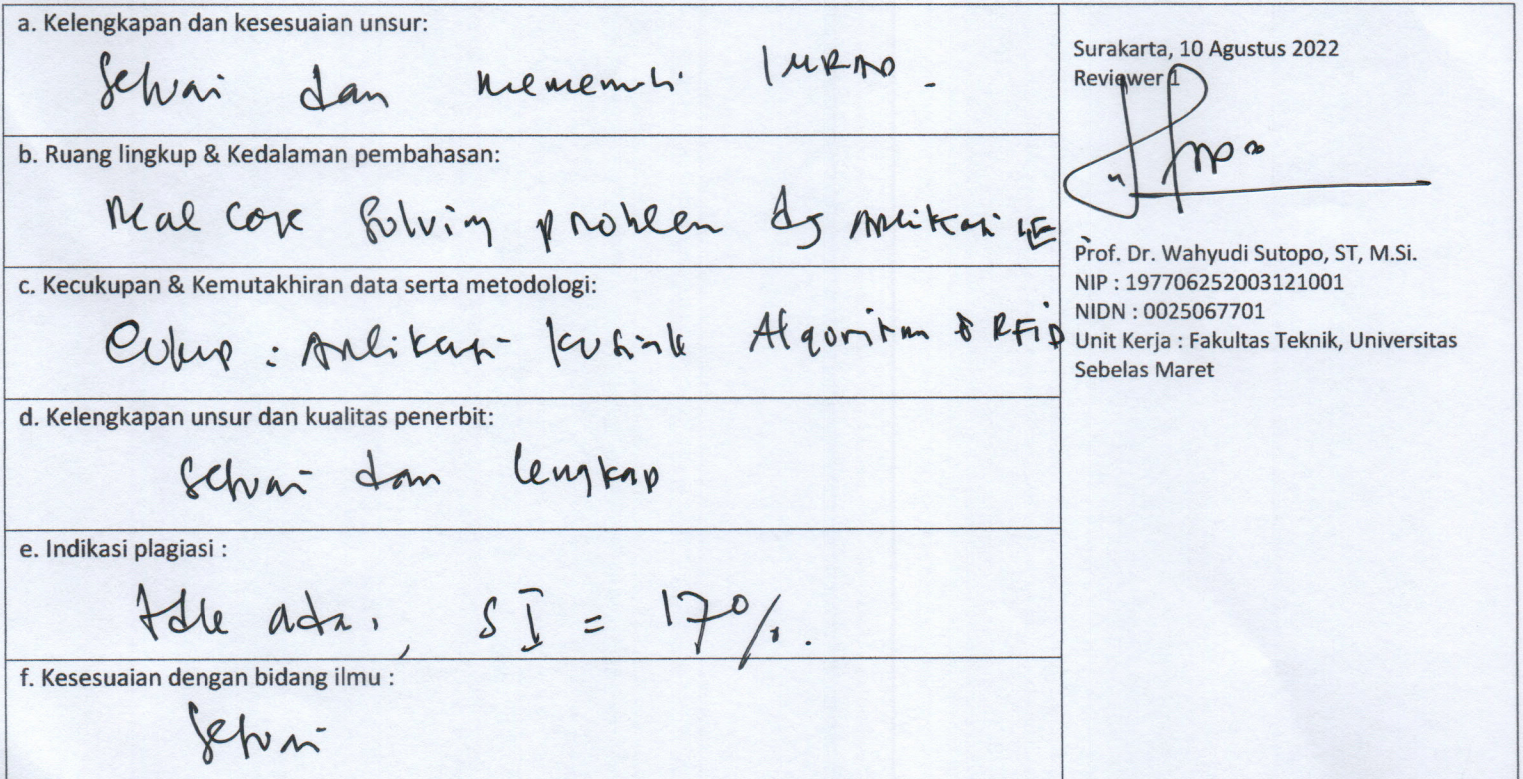 a. Kelengkapan dan kesesuaian unsur:
Sesuai dan memenuhi IMRAD.
b. Ruang lingkup & Kedalaman pembahasan:
Real case solving problem dg aplikasi IE
c. Kecukupan & Kemutakhiran data serta metodologi:
Cukup : Aplikasi Kusiak Algoritm & RFID
d. Kelengkapan unsur dan kualitas penerbit:
Sesuai dan lengkap
e. Indikasi plagiasi :
tdk ada, SI = 17%.
f. Kesesuaian dengan bidang ilmu :
Sesuai
Surakarta, 10 Agustus 2022
Reviewer 1
Prof. Dr. Wahyudi Sutopo, ST, M.Si.
NIP : 197706252003121001
NIDN : 0025067701
Unit Kerja : Fakultas Teknik, Universitas
Sebelas Maret